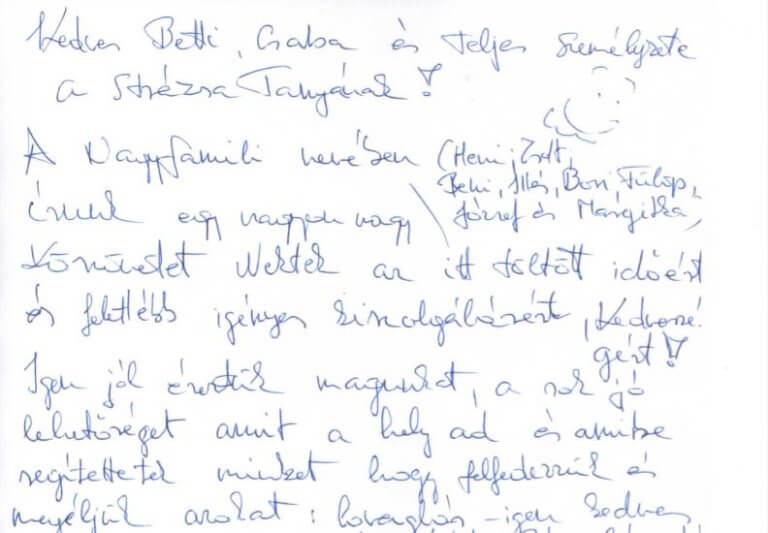 Kedves Betti, Csaba és Teljes Személyzete
a Strázsa Tanyának!
A Nagyfamili nevében (Heni, Zsolt,
Beni, Illés, Bori, Fülöp,
József és Margitka,
írunk egy nagyon nagy
Köszönetet Nektek az itt töltött időért
és felettébb igényes kiszolgálásért, Kedvessé
gért!
Igen jól éreztük magunkat, a sok jó
lehetőséget amit a hely ad és amitse
segítettetek minket hogy felfedezzük és
megéljük azokat: lovaglás - igen kedves